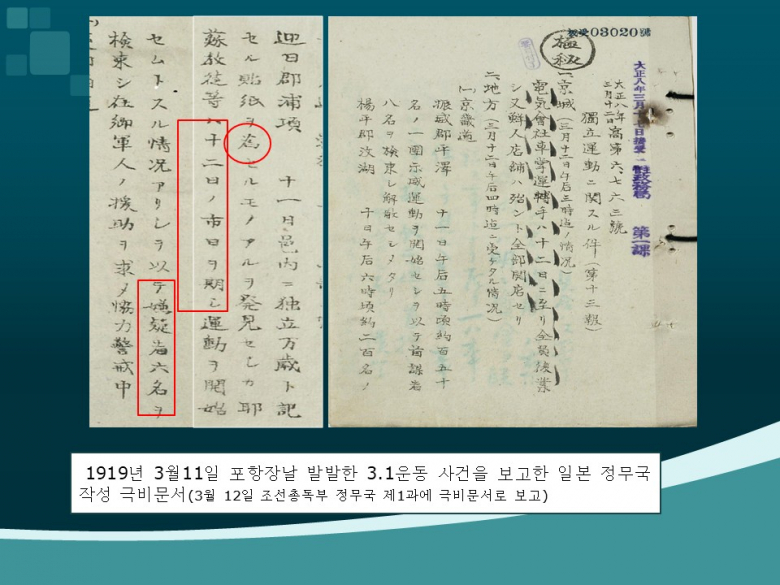 極秘
受03020號
大正八年三月
第一課
大正八年
三月十二日
高第六、七六三號
獨立運動ニ関スル件(第十三報)
一、京城(三月十二日午后三時迄ノ情况)
電氣會社車掌運轉手ハ十二日ニ至リ全員就業
シ又鮮人店鋪ハ殆ント全部開店セリ
二、地方(三月十二日午后四時迄ニ受ケタル情况)
(一)京畿道
振威郡平澤 十一日午后五時頃約百五十
名ノ一團示威運動ヲ開始セシヲ以テ首謀者
八名ヲ検束シ解散セシメタリ
楊平郡汶湖 十日午后六時頃約二百名ノ
迎日郡浦項 十一日邑内ニ独立万歳ト記
セル貼紙ヲ為セルモノアルヲ発見セシカ耶
蘇教徒等ハ十二日ノ市日ヲ期シ運動ヲ開始
セムトスル情况アリシヲ以テ嫌疑者六名ヲ
検束シ在郷軍人ノ援助ヲ求メ協力警戒中
1919년 3월11일 포항장날 발발한 3.1운동 사건을 보고한 일본 정무국
작성 극비문서(3월 12일 조선총독부 정무국 제1과에 극비문서로 보고)